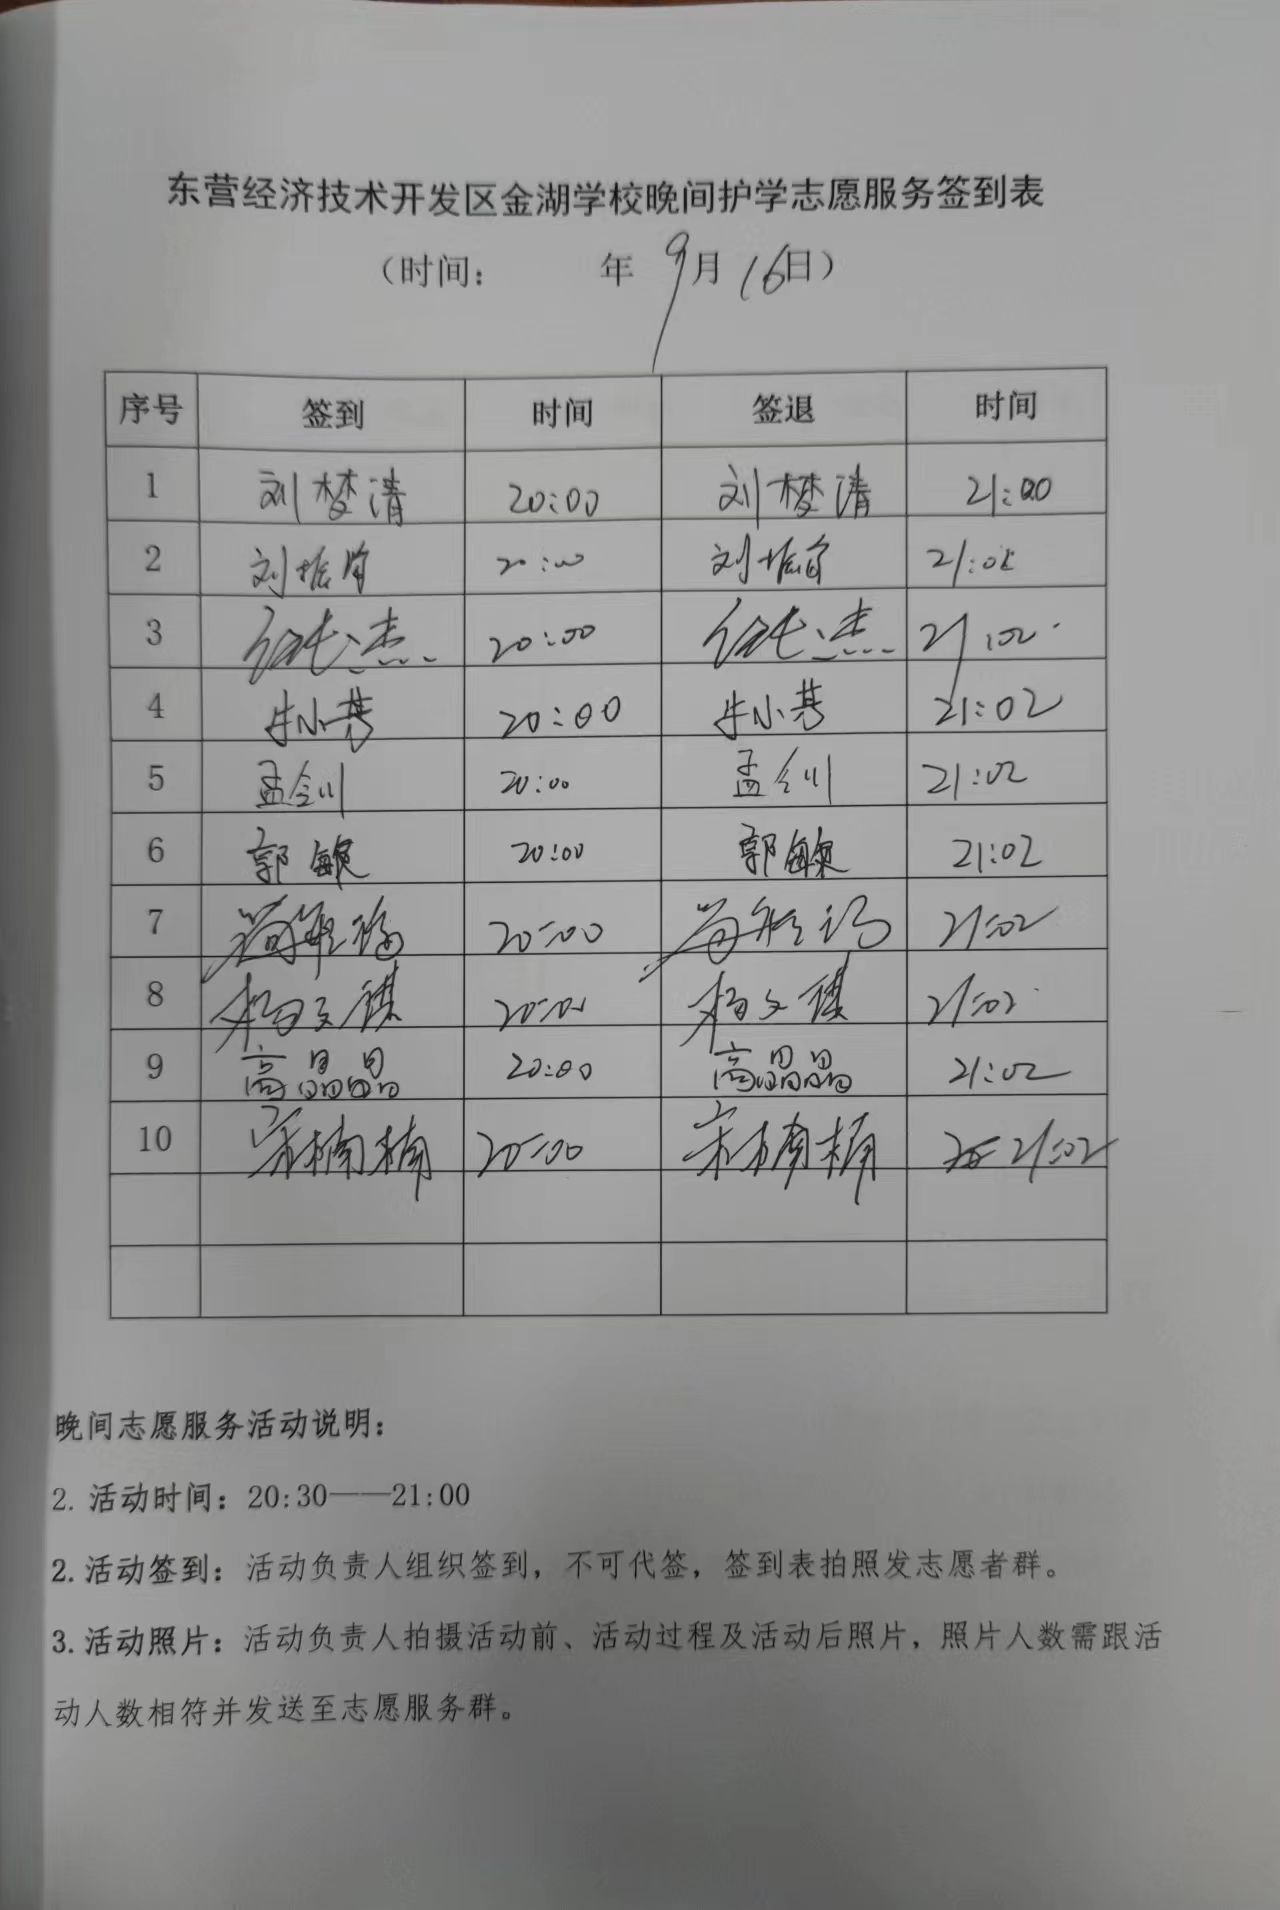 东营经济技术开发区金湖学校晚间护学志愿服务签到表
（时间： 年 9月 16日）
序号 签到 时间 签退 时间
1 刘梦清 20:00 刘梦清 21:00
2 刘 20:00 刘 21:02
3 20:00 21:02
4 牛小 20:00 牛小 21:02
5 孟剑 20:00 孟剑 21:02
6 郭 20:00 郭 21:02
7 20:00 21:02
8 杨文祺 20:00 杨文祺 21:02
9 高晶晶 20:00 高晶晶 21:02
10 宋楠楠 20:00 宋楠楠 21:02
晚间志愿服务活动说明：
2. 活动时间：20:30——21:00
2.活动签到：活动负责人组织签到，不可代签，签到表拍照发志愿者群。
3.活动照片：活动负责人拍摄活动前、活动过程及活动后照片，照片人数需跟活
动人数相符并发送至志愿服务群。